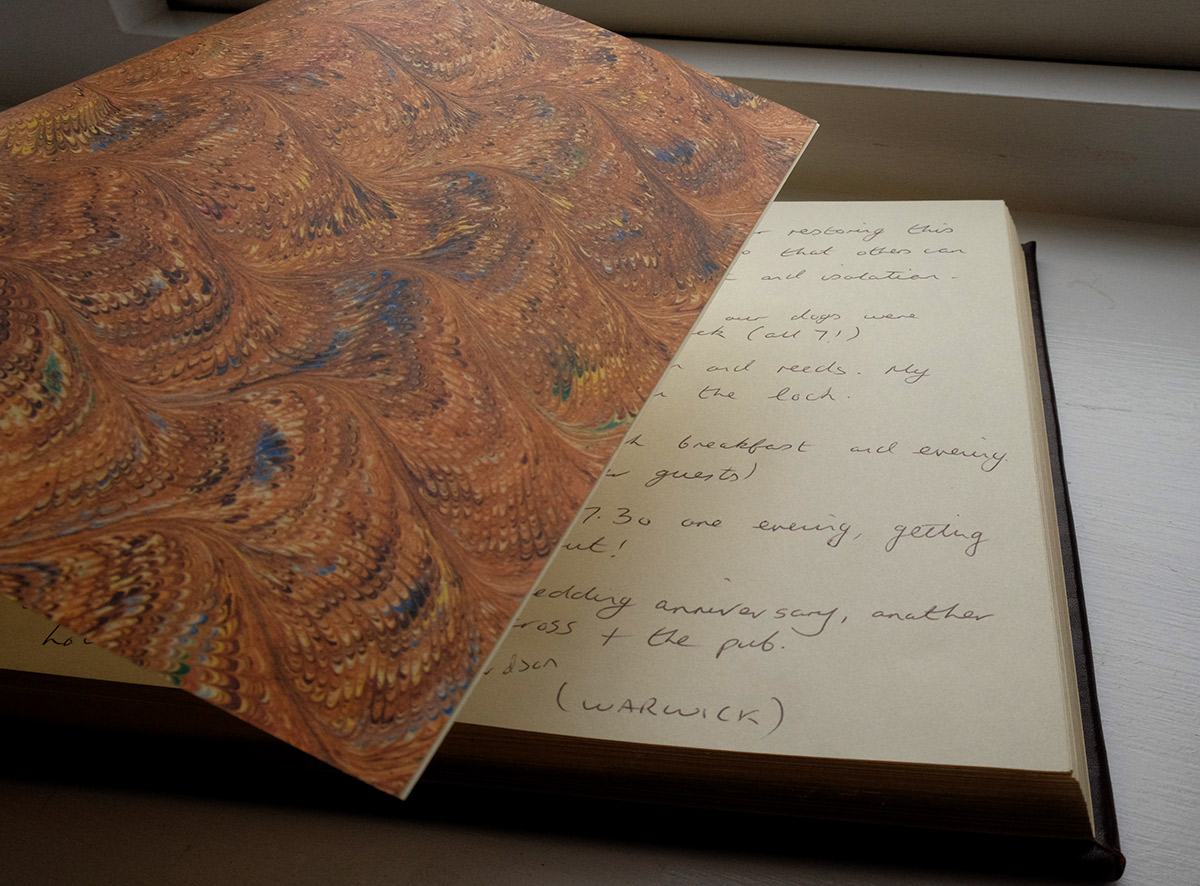 restoring this
that others can
and isolation.
our dogs were
(all 7!)
and reeds. My
the loch.
breakfast and evening.
guests)
7.30 one evening, getting
ut!
edding anniversary, another
ross + the pub.
dson
(WARWICK)